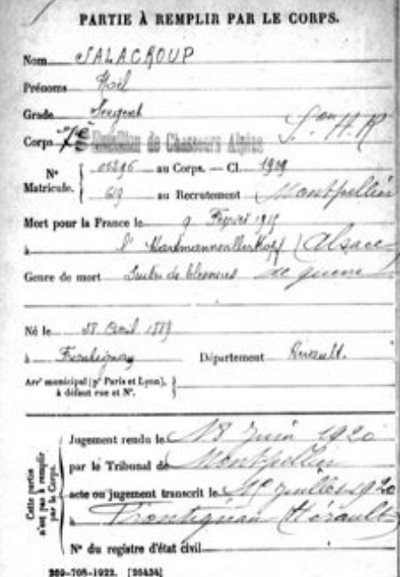 PARTIE À REMPLIR PAR LE CORPS.
Nom SALACROUP
Prénoms Noël
Grade Sergent
Corps 7e Bataillon de Chasseurs Alpins
N° Matricule. { 05296 au Corps. — Cl. 1909
619 au Recrutement Montpellier
Mort pour la France le 9 Février 1915
à l'Hartmannswillerkopf (Alsace)
Genre de mort Suites de blessures de guerre
Né le 28 Avril 1889
à Frontignan Département Hérault.
Arrt municipal (pr Paris et Lyon), à défaut rue et N°. }
Cette partie n'est pas à remplir par le Corps.
Jugement rendu le 18 Juin 1920
par le Tribunal de Montpellier
acte ou jugement transcrit le juillet 1920
à Frontignan (Hérault)
N° du registre d'état civil
369-708-1922. [26434]